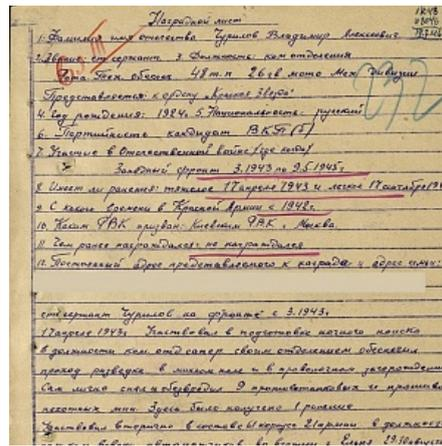 Наградной лист
1. Фамилия имя отчество Чурилов Владимир Алексеевич
2. Звание: ст. сержант 3. Должность: ком отделения
Рота Тех. обесп. 48 т.п 26 гв мото Мех. Дивизии
Представляется к ордену "Красная Звезда"
4. Год рождения: 1924г. 5. Национальность: русский
6. Партийность кандидат ВКП(б)
7. Участие в Отечественной войне (где когда)
Западный фронт 3.1943 по 9.5.1945г.
8. Имеет ли ранения: тяжелое 17 апреля 1943 и легкое 17 сентября 19
9. С какого времени в Красной Армии с 1942г.
10. Каким РВК призван: Киевским РВК г. Москва.
11. Чем ранее награждался: не награждался
12. Постоянный адрес представляемого к награде и адрес семьи:
ст сержант Чурилов на фронте с 3.1943г.
17 апреля 1943г. Участвовал в подготовке ночного поиска
в должности ком. отд сапер своим отделением обеспечил
проход разведке в минном поле и в проволочном заграждении
Сам лично снял и обезвредил 9 противотанковых и
пехотных мин. Здесь было получено 1 ранение.
Участвовал вторично в составе 61 корпуса 21 армии в должност